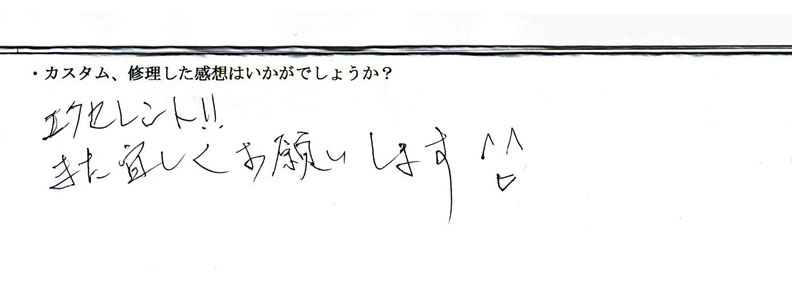 ・カスタム、修理した感想はいかがでしょうか？
エクセレント!!
また宜しくお願いします ^^